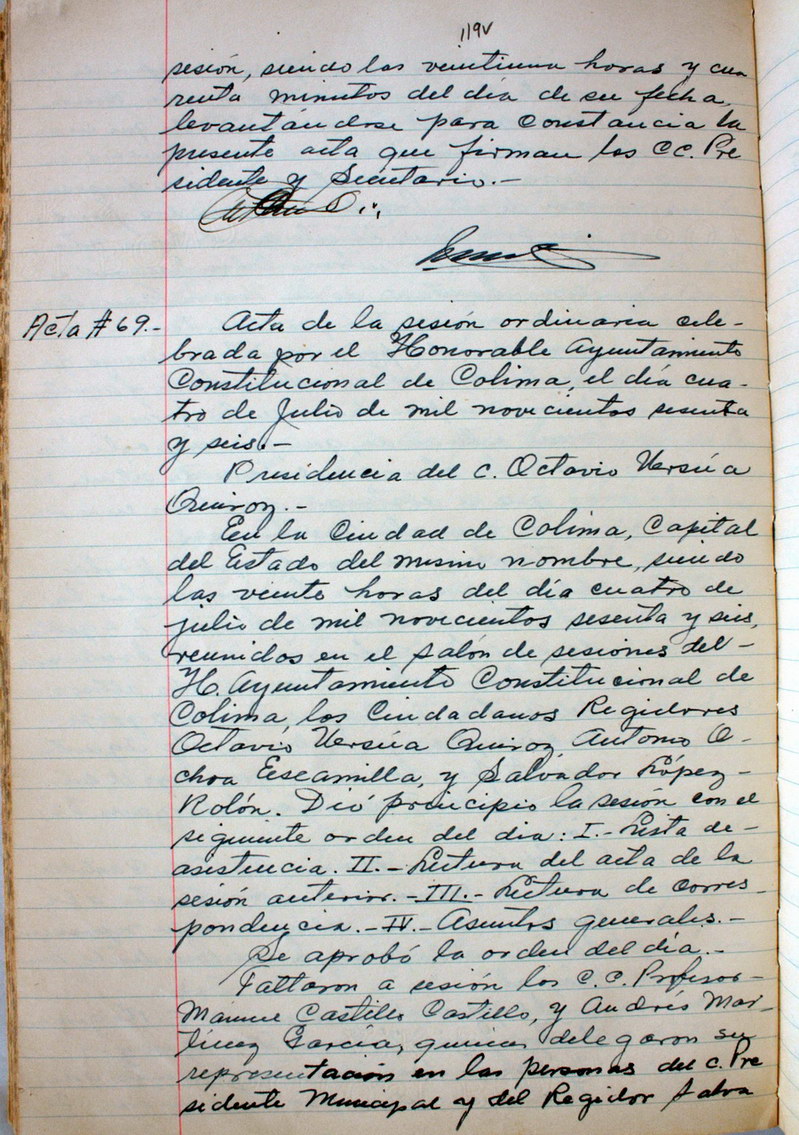 119v
sesión, siendo las veintiuna horas y cua
renta minutos del día de su fecha,
levantándose para constancia la
presente acta que firman los CC. Pre
sidente y Secretario.-
Acta #69.-
Acta de la sesión ordinaria cele-
brada por el Honorable Ayuntamiento
Constitucional de Colima, el día cua-
tro de Julio de mil novecientos sesenta
y seis.-
Presidencia del C. Octavio Versúa
Quiroz.-
En la Ciudad de Colima, Capital
del Estado del mismo nombre, siendo
las veinte horas del día cuatro de
julio de mil novecientos sesenta y seis,
reunidos en el salón de sesiones del-
H. Ayuntamiento Constitucional de
Colima, los Ciudadanos Regidores
Octavio Versúa Quiroz, Antonio O-
choa Escamilla, y Salvador López-
Rolón. Dió principio la sesión con el
siguiente orden del dia: I.- Lista de-
asistencia. II.- Lectura del acta de la
sesión anterior.- III.- Lectura de corres-
pondencia.- IV.- Asuntos generales.-
Se aprobó la orden del día.-
Faltaron a sesión los C.C. Profesor-
Manuel Castillo Castillo, y Andrés Mar-
tínez García, quienes delegaron su
representación en las personas del C. Pre
sidente Municipal y del Regidor Salva